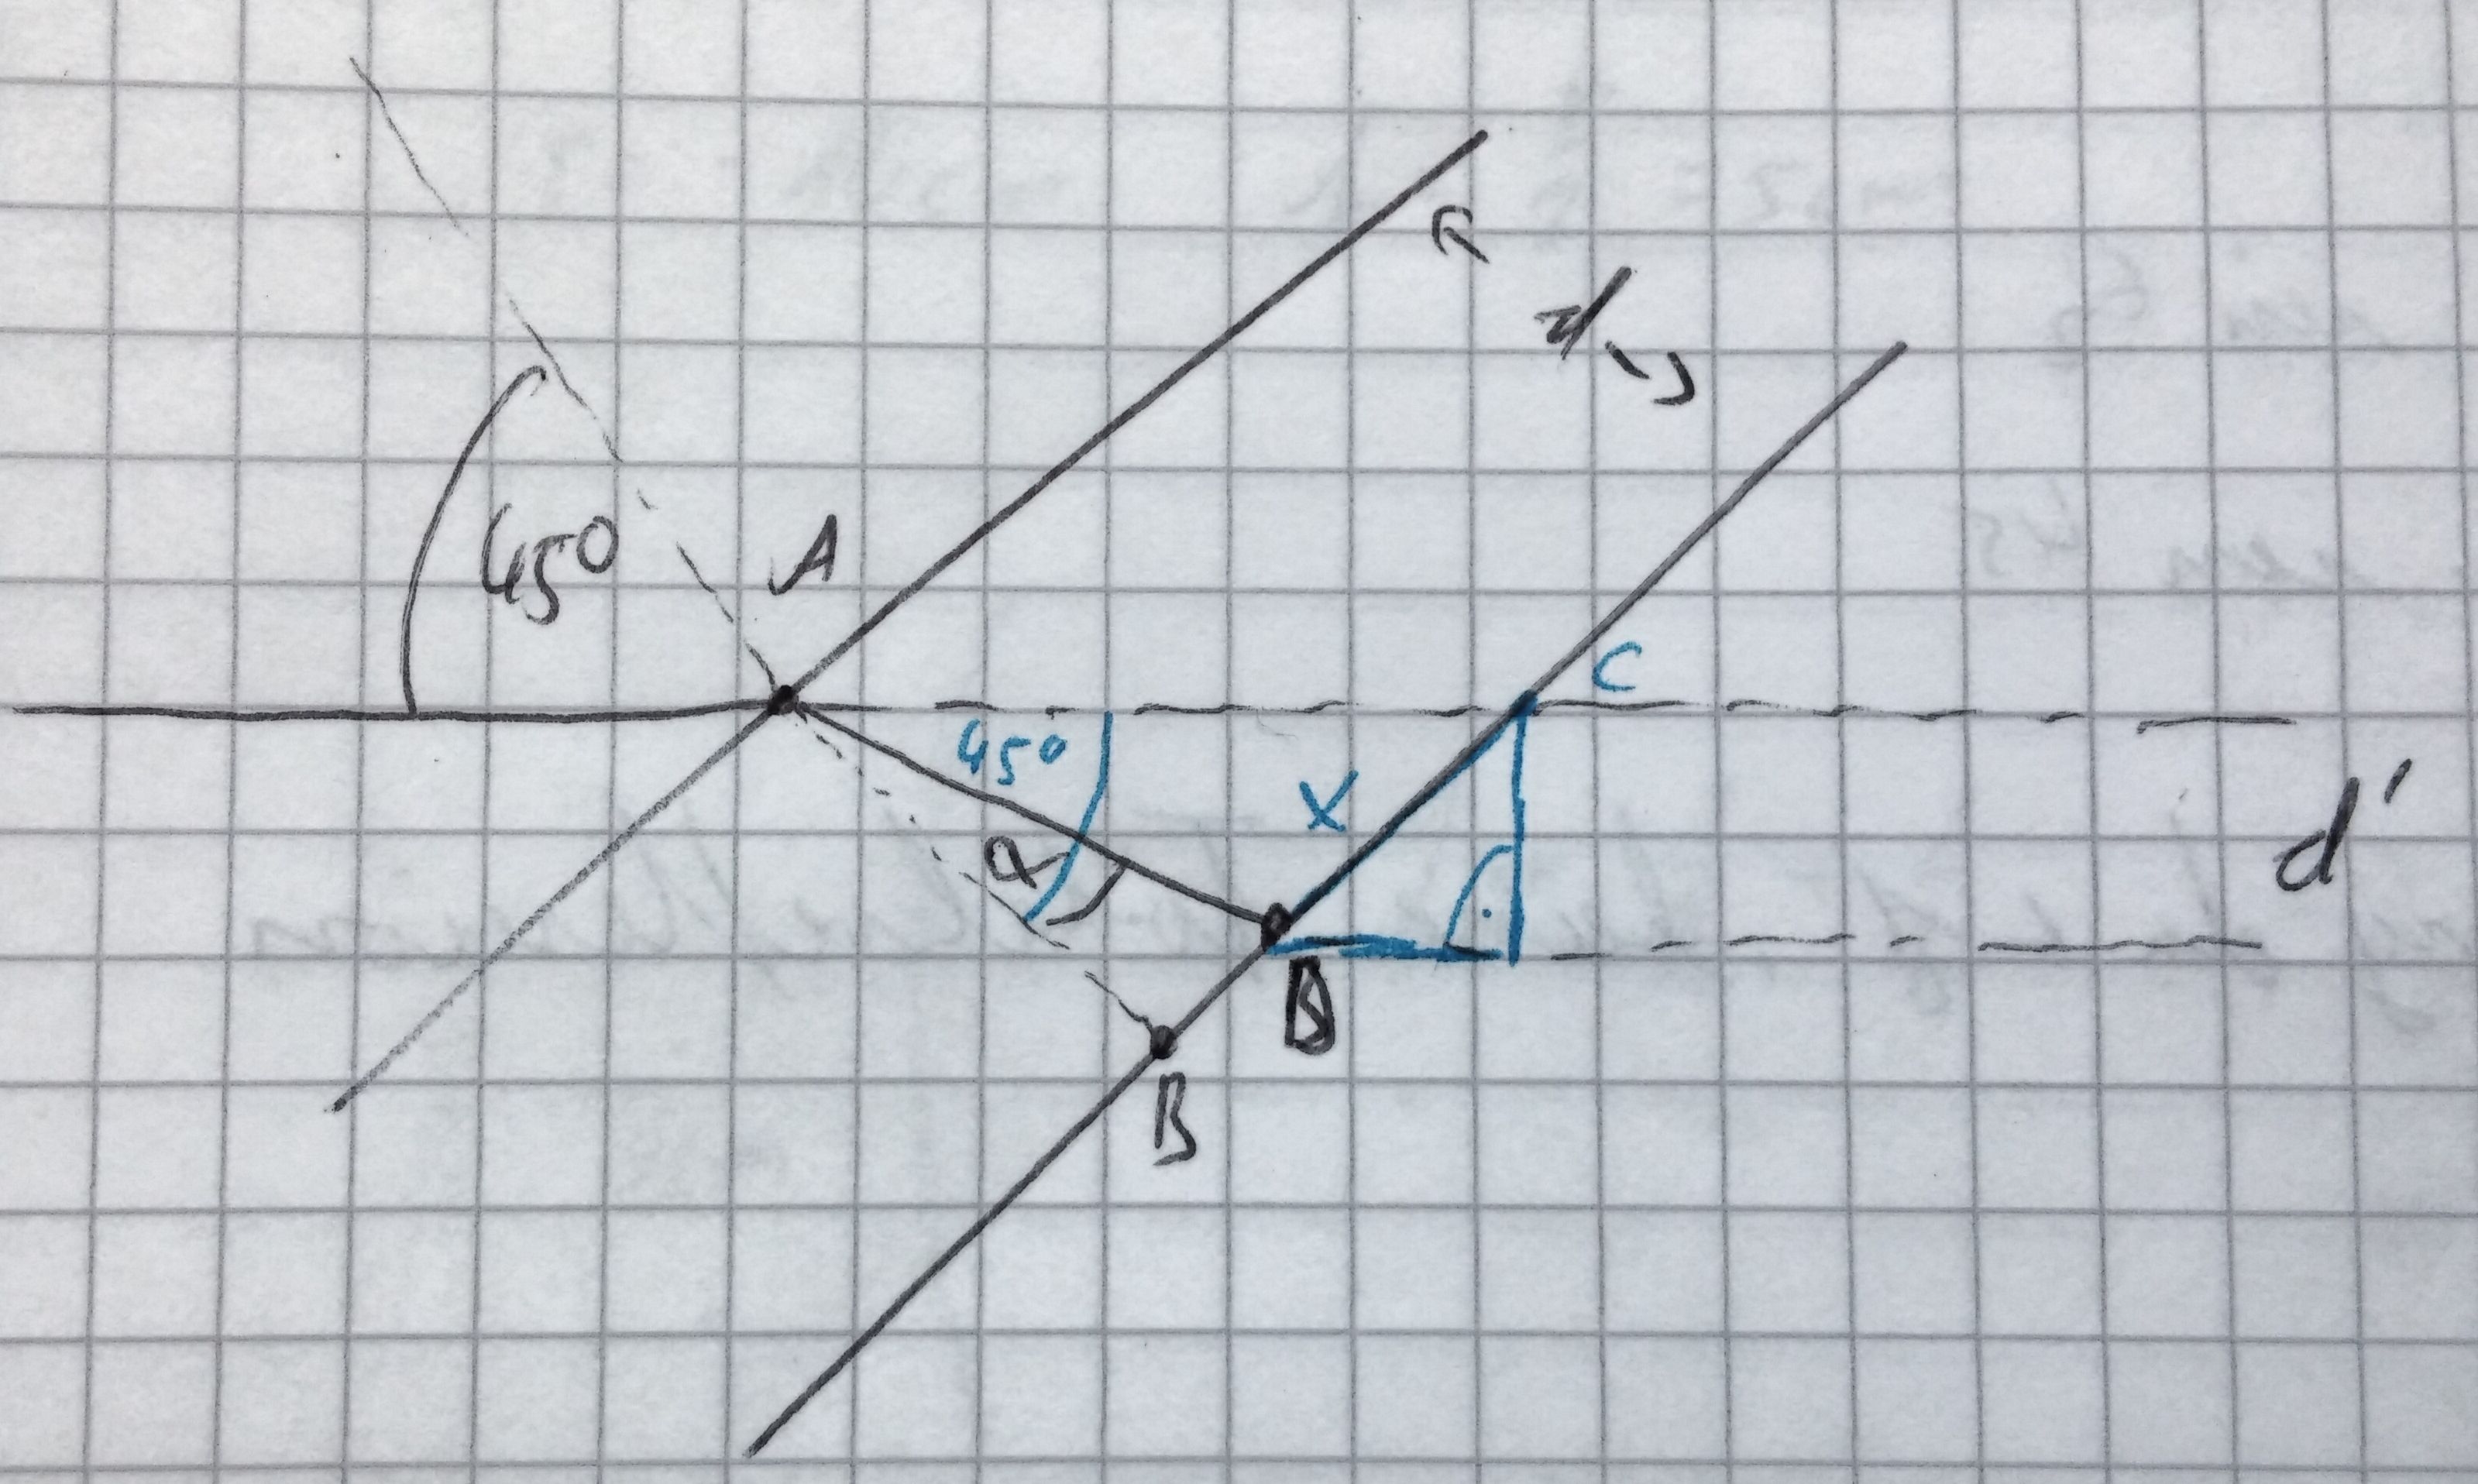 d
45°
A
C
45°
X
d'
α
D
B